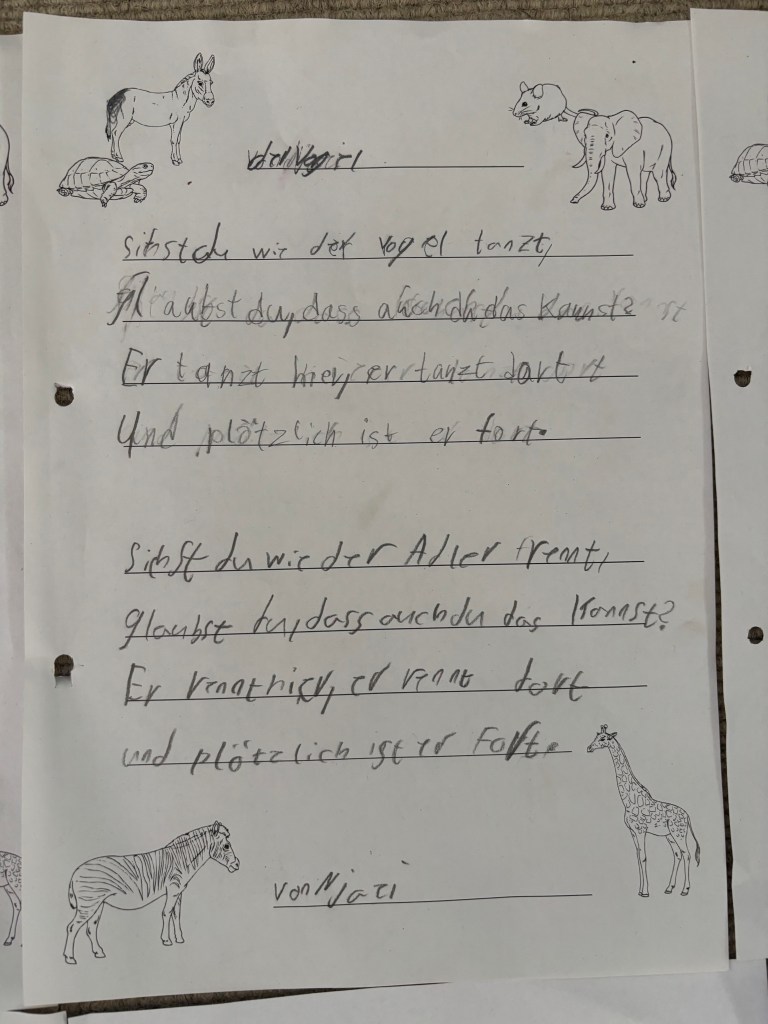 der Vogel
Sihst du wie der Vogel tanzt,
Glaubst du, dass auch du das kannst?
Er tanzt hier, er tanzt dort
Und plötzlich ist er fort.
Sihst du wie der Adler rennt,
glaubst du, dass auch du das Kannst?
Er rennt hier, er rennt dort
und plötzlich ist er Fort.
von Njari